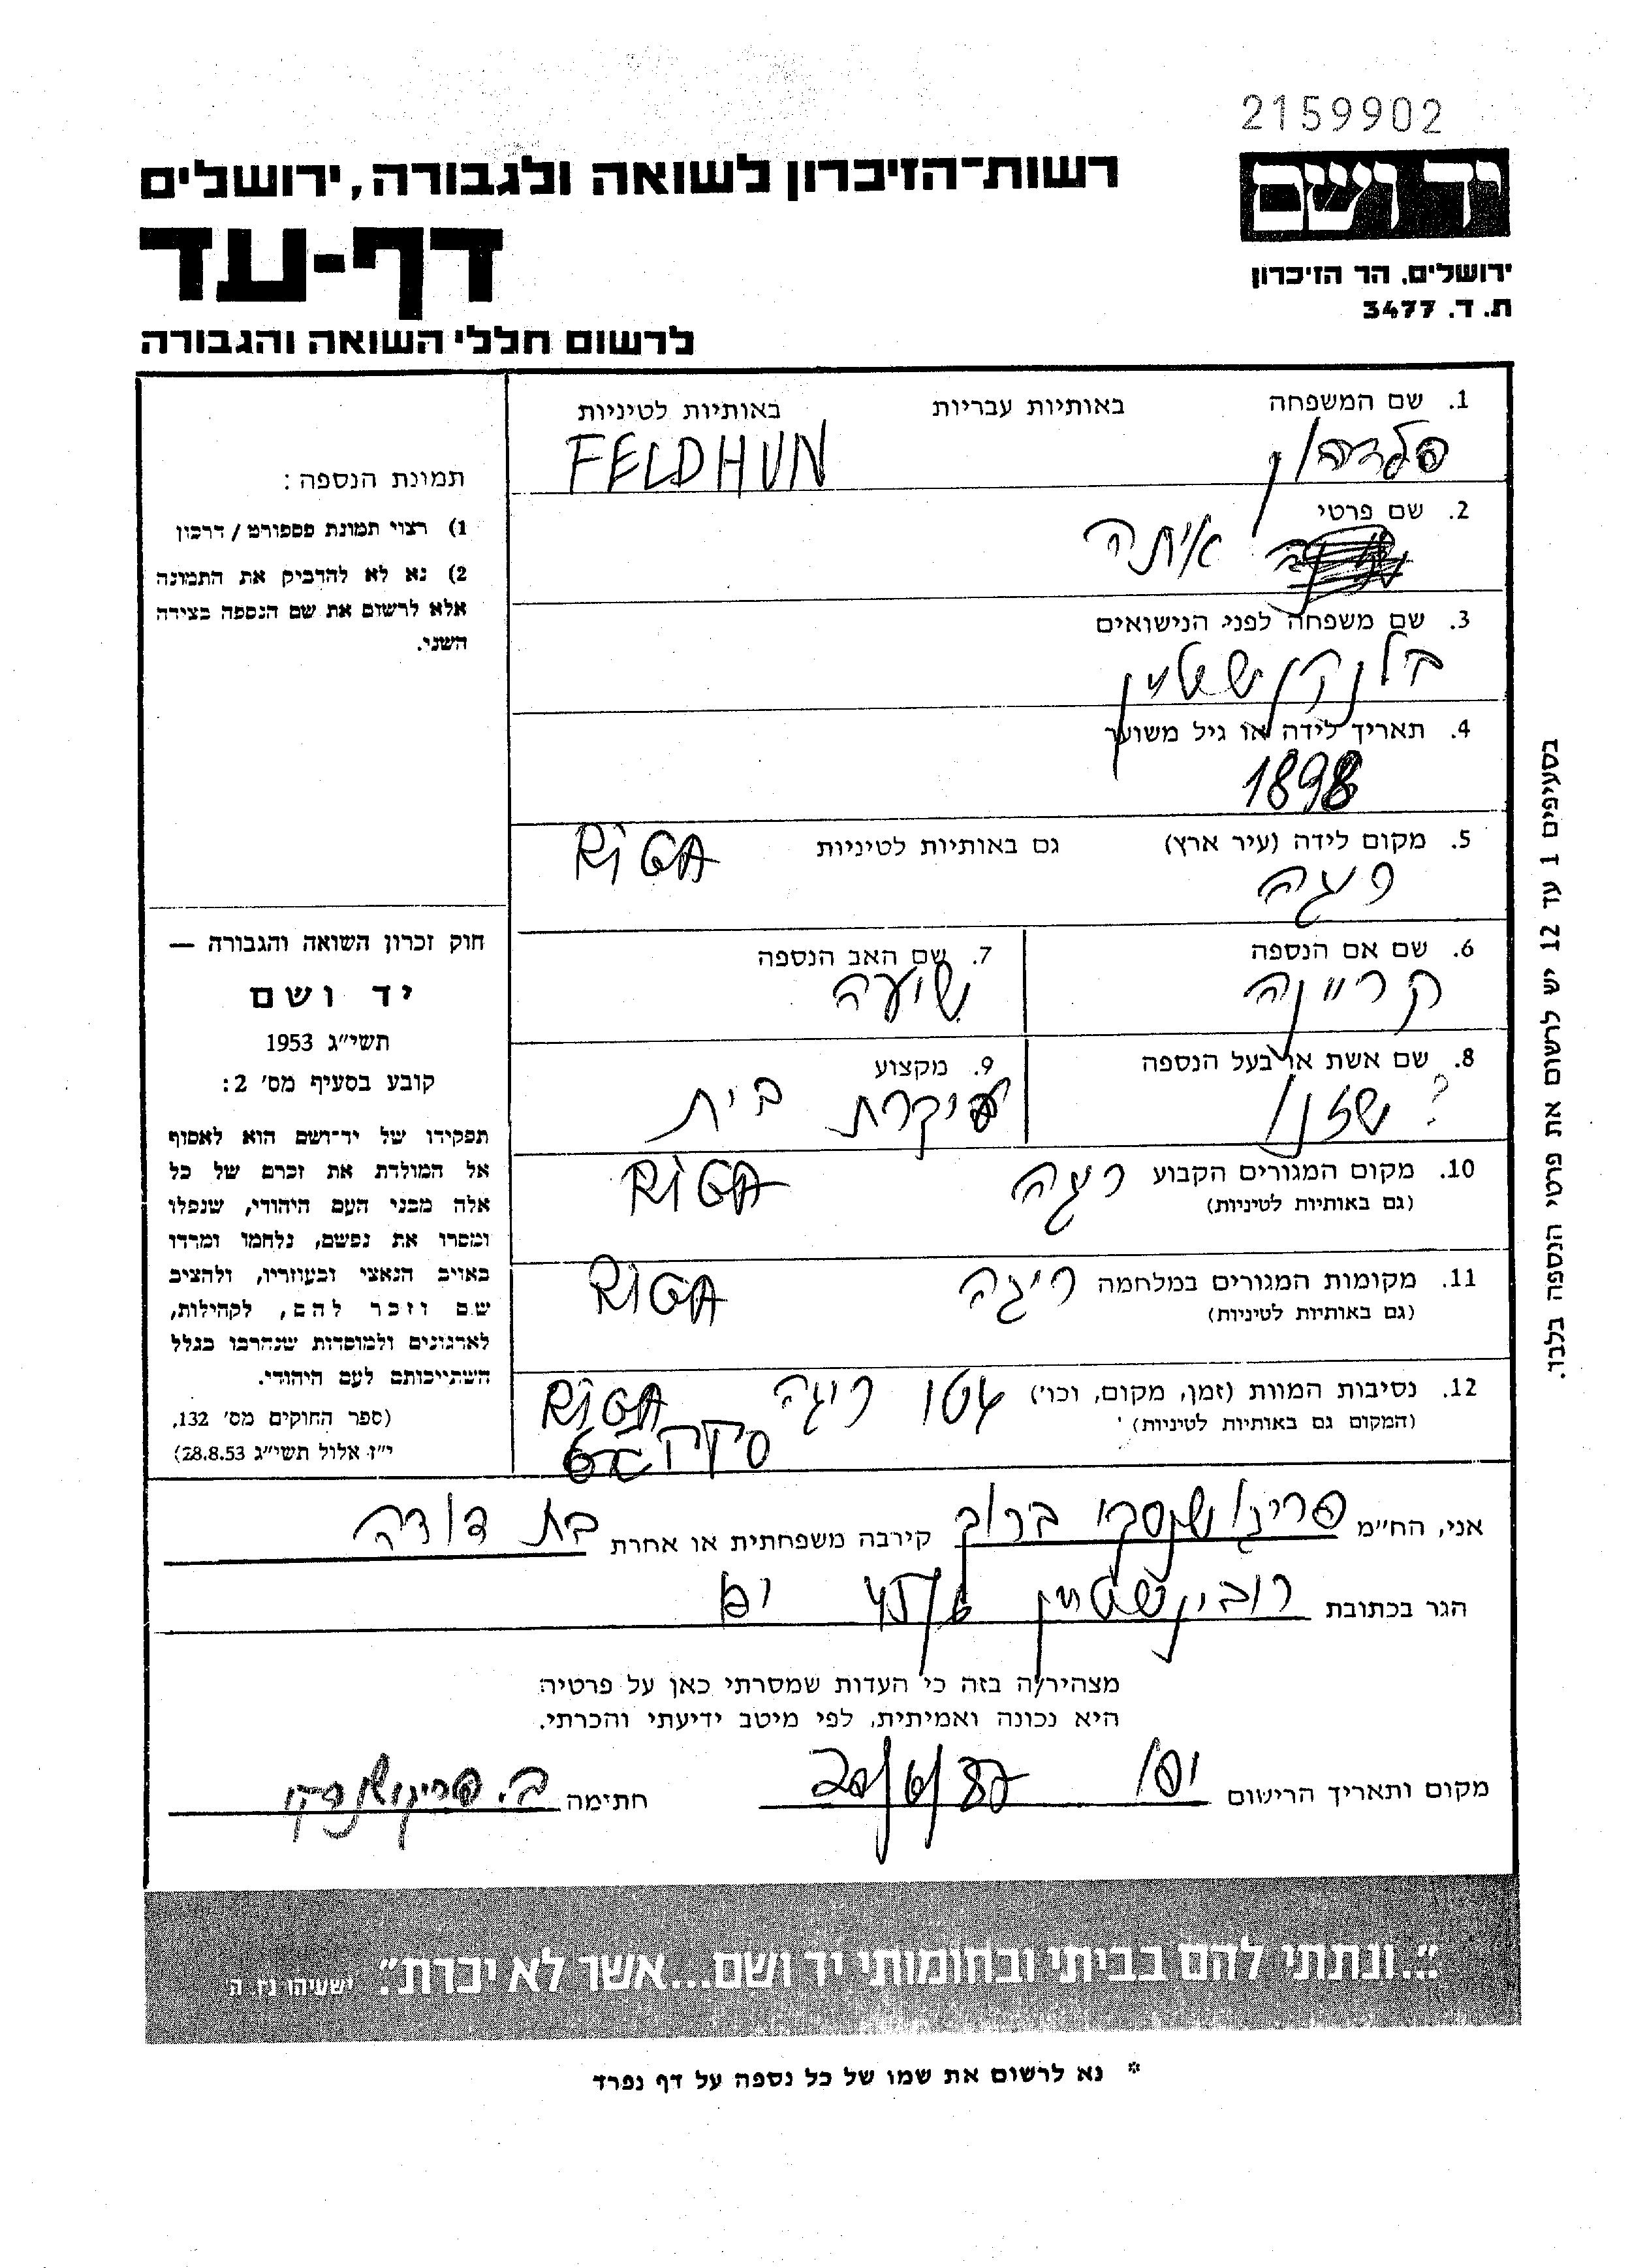 2159902
יד ושם
רשות־הזיכרון לשואה ולגבורה, ירושלים
דף-עד
ירושלים, הר הזיכרון
ת. ד. 3477
לרשום חללי השואה והגבורה
1. שם המשפחה באותיות עבריות באותיות לטיניות
פלדהון FELDHUN
2. שם פרטי
איתה
3. שם משפחה לפני הנישואים
בלנקנשטיין
4. תאריך לידה או גיל משוער
1898
5. מקום לידה (עיר ארץ) גם באותיות לטיניות RIGA
ריגה
6. שם אם הנספה
קריינה
7. שם האב הנספה
שועה
8. שם אשת או בעל הנספה
?
9. מקצוע
עקרת בית
10. מקום המגורים הקבוע ריגה RIGA
(גם באותיות לטיניות)
11. מקומות המגורים במלחמה ריגה RIGA
(גם באותיות לטיניות)
12. נסיבות המוות (זמן, מקום, וכו') גטו ריגה RIGA
(המקום גם באותיות לטיניות)
תמונת הנספה:
1) רצוי תמונת פספורט / דרכון
2) נא לא להדביק את התמונה
אלא לרשום את שם הנספה בצידה
השני.
חוק זכרון השואה והגבורה —
יד ושם
תשי״ג 1953
קובע בסעיף מס׳ 2:
תפקידו של יד־ושם הוא לאסוף
אל המולדת את זכרם של כל
אלה מבני העם היהודי, שנפלו
ומסרו את נפשם, נלחמו ומרדו
באויב הנאצי ובעוזריו, ולהציב
שם וזכר להם, לקהילות,
לארגונים ולמוסדות שנחרבו בגלל
השתייכותם לעם היהודי.
(ספר החוקים מס׳ 132,
י״ז אלול תשי״ג 28.8.53)
בסעיפים 1 עד 12 יש לרשום את פרטי הנספה בלבד.
אני, הח״מ ברוך קירבה משפחתית או אחרת בת דודה
הגר בכתובת רובינשטיין יפו
מצהיר/ה בזה כי העדות שמסרתי כאן על פרטיה
היא נכונה ואמיתית, לפי מיטב ידיעתי והכרתי.
מקום ותאריך הרישום יפו 20/6/87 חתימה
״...ונתתי להם בביתי ובחומותי יד ושם...אשר לא יכרת״. ישעיהו נו, ה׳
* נא לרשום את שמו של כל נספה על דף נפרד